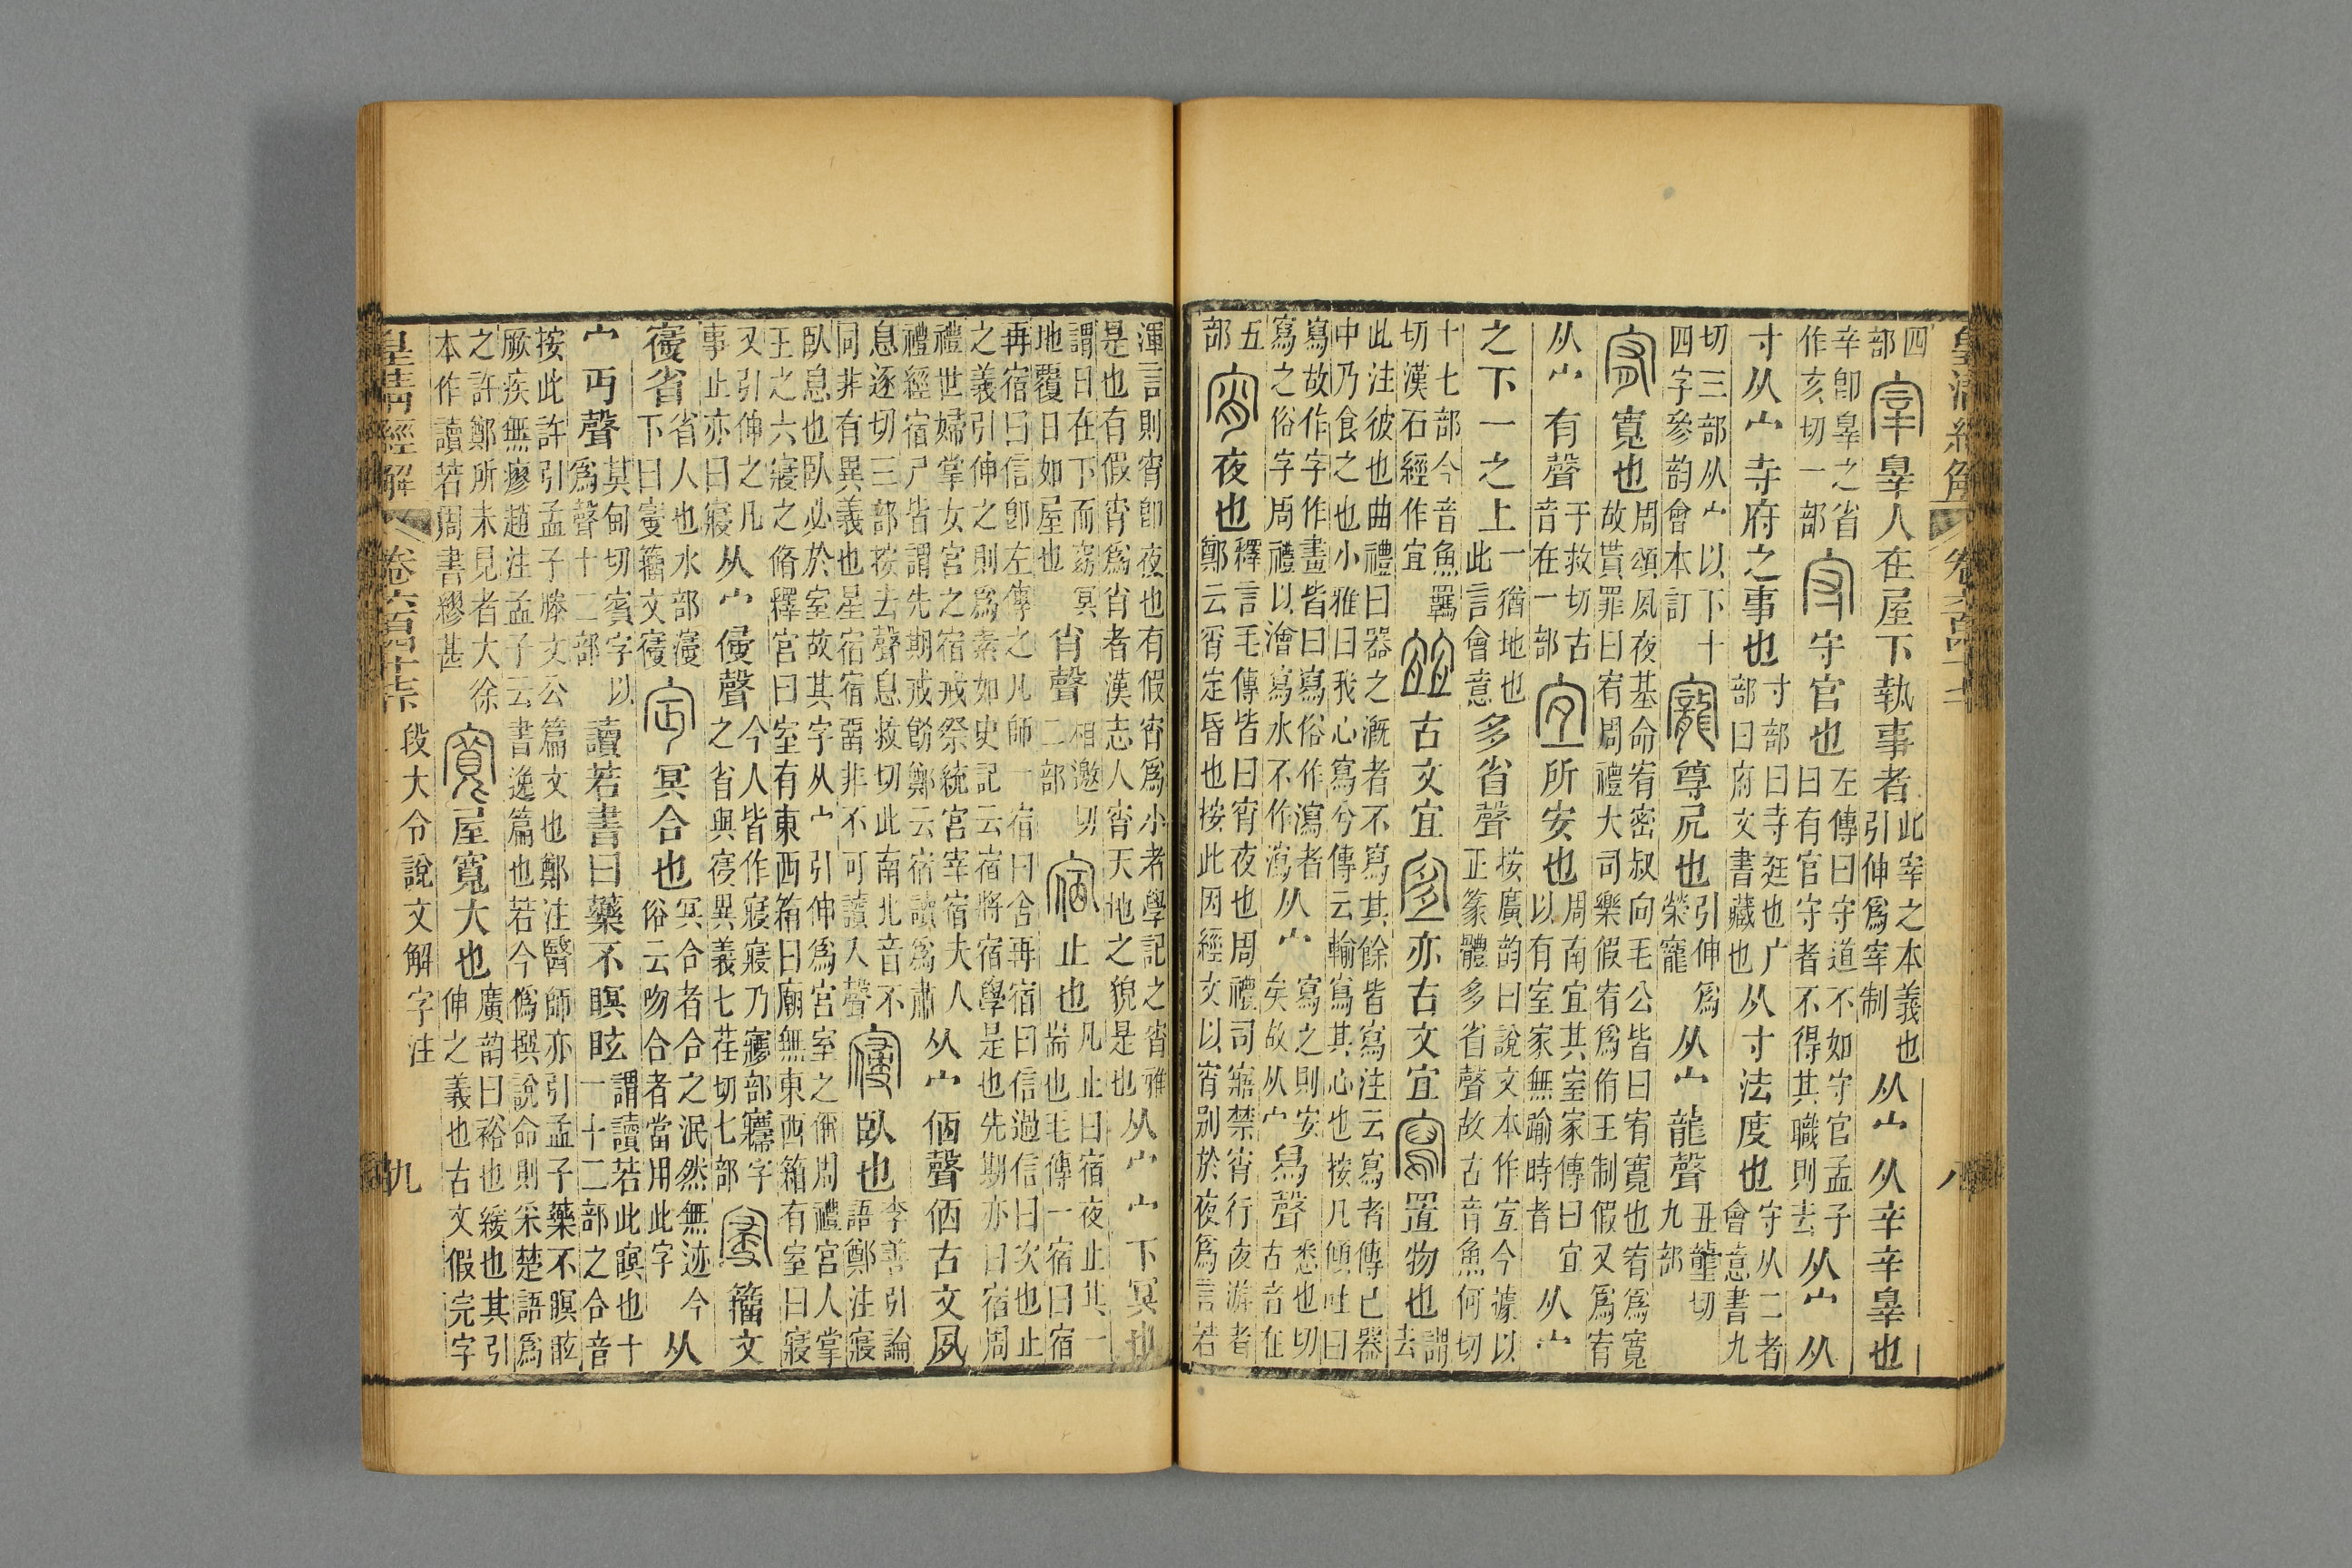 皇清經解 卷六百四十七 八
四部 宰 辠人在屋下執事者 此宰之本義也引伸爲宰制 从宀从辛辛辠也
辛卽辠之省作亥切一部 守 守官也 左傳曰守道不如守官孟子曰有官守者不得其職則去 从宀从
寸从宀寺府之事也 寸部曰寺廷也广部曰府文書藏也 从寸法度也 守从二者會意書九
切三部从宀以下十四字參韵會本訂 寵 尊凥也 引伸爲榮寵 从宀龍聲 丑壟切九部
宥 寬也 周頌夙夜基命宥密叔向毛公皆曰宥寬也宥爲寬故貰罪曰宥周禮大司樂假宥爲侑王制假又爲宥
从宀有聲 于救切古音在一部 宐 所安也 周南宜其室家傳曰宜以有室家無踰時者 从宀
之下一之上 一猶地也此言會意 多省聲 按廣韵曰說文本作宐今據以正篆體多省聲故古音魚何切
十七部今音魚羈切漢石經作宜 古文宜 亦古文宜 寫 置物也 謂去
此注彼也曲禮曰器之漑者不寫其餘皆寫注云寫者傳己器中乃食之也小雅曰我心寫兮傳云輸寫其心也按凡傾吐曰
寫故作字作畫皆曰寫俗作瀉者寫之俗字周禮以澮寫水不作瀉 从宀 寫之則安矣故从宀 舄聲 悉也切古音在
五部 宵 夜也 釋言毛傳皆曰宵夜也周禮司寤禁宵行夜游者鄭云宵定昏也按此因經文以宵別於夜爲言若
渾言則宵卽夜也有假宵爲小者學記之宵雅是也有假宵爲肖者漢志人宵天地之貌是也 从宀宀下冥也
謂日在下而窈冥地覆日如屋也 肖聲 相邀切二部 宿 止也 凡止曰宿夜止其一耑也毛傳一宿曰宿
再宿曰信卽左傳之凡師一宿曰舍再宿曰信過信曰次也止之義引伸之則爲素如史記云宿將宿學是也先期亦曰宿周
禮世婦掌女宮之宿戒祭統宮宰宿夫人禮經宿尸皆謂先期戒飭鄭云宿讀爲肅 从宀㐁聲㐁古文夙
息逐切三部按去聲息救切此南北音不同非有異義也星宿宿畱非不可讀入聲 寑 臥也 李善引論語鄭注寢
臥息也臥必於室故其字从宀引伸爲宮室之偁周禮宮人掌王之六寢之脩釋宮曰室有東西箱曰廟無東西箱有室曰寢
又引伸之凡事止亦曰寢 从宀㑴聲 今人皆作寢寢乃㝲部字之省與寑異義七荏切七部 籒文
寑省 省人也水部濅下曰㝲籒文寑 㝉 冥合也 冥合者合之泯然無迹今俗云吻合者當用此字 从
宀丏聲 其甸切賓字以爲聲十二部 讀若書曰藥不瞑眩 謂讀若此瞑也十一十二部之合音
按此許引孟子滕文公篇文也鄭注醫師亦引孟子藥不瞑眩厥疾無瘳趙注孟子云書逸篇也若今僞撰說命則采楚語爲
之許鄭所未見者大徐本作讀若周書繆甚 寬 屋寬大也 廣韵曰裕也緩也其引伸之義也古文假完字
皇清經解 卷六百四十七 段大令說文解字注 九